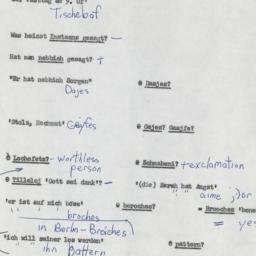 der Fasttag am 9. Ur
Tischebof
Was heisst Instanns gesagt? -
Hat man nebbich gesagt? +
"Er hat nebbich Sorgen" @ Dasjes?
Dajes
'Stolz, Hochmut' Gayfes @ Gejes? Gaajfe?
@ Lochofets? - worthless person @ Schnabeni? + exclamation
@ Tilleloj 'Gott sei dank'? - '(die) Sarah hat Angst'
" " aime ;) or
'er ist auf mich böse' @ boroches? = Brooches 'bens
" " broches = ye
in Berlin - Breiches
'ich will seiner los werden' @ pattern?
" " ihn Pattern